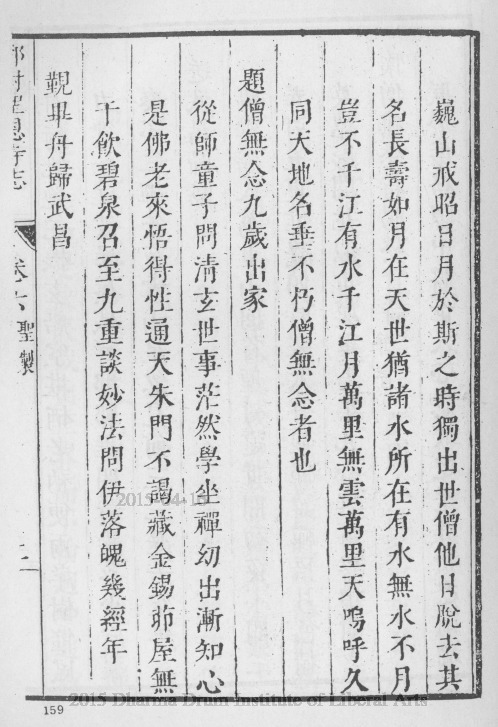 巍山戒昭日月於斯之時獨出世僧他日脫去其
名長壽如月在天世猶諸水所在有水無水不月
豈不千江有水千江月萬里無雲萬里天嗚呼久
同天地名垂不朽僧無念者也
題僧無念九歲出家
從師童子問清玄世事茫然學坐禪幼出漸知心
是佛老來悟得性通天朱門不謁藏金錫茆屋無
干飲碧泉召至九重談妙法問伊落魄幾經年
觀畢舟歸武昌
寺志 卷六 聖製 二
2015-04-16
2015 Dharma Drum Institute of Liberal Arts
159